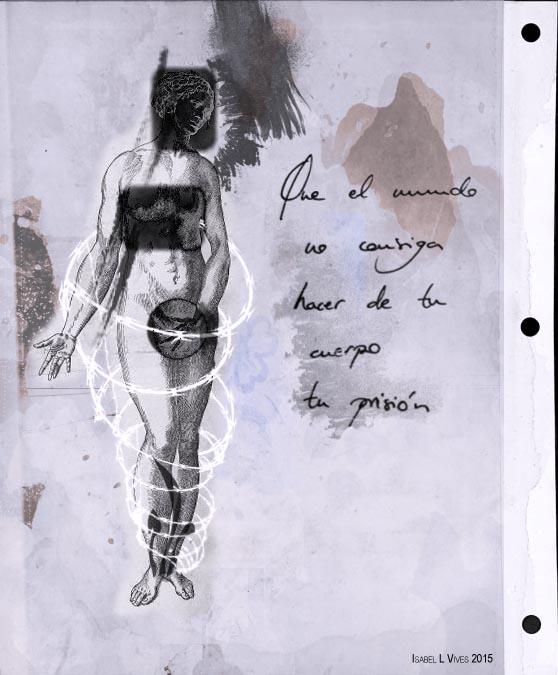 Que el mundo
no consiga
hacer de tu
cuerpo
tu prisión
ISABEL L VIVES 2015